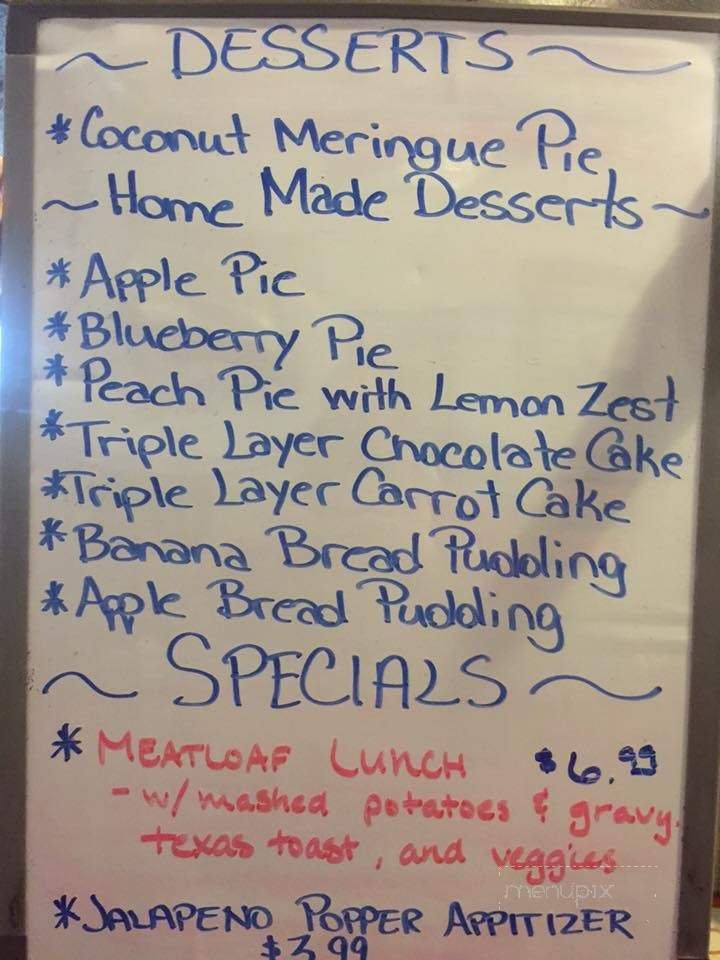 ~ DESSERTS ~
* Coconut Meringue Pie
~ Home Made Desserts ~
* Apple Pie
* Blueberry Pie
* Peach Pie with Lemon Zest
* Triple Layer Chocolate Cake
* Triple Layer Carrot Cake
* Banana Bread Pudding
* Apple Bread Pudding
~ SPECIALS ~
* MEATLOAF LUNCH $6.99
- w/ mashed potatoes & gravy,
texas toast, and veggies
menupix
* JALAPENO POPPER APPITIZER
$3.99